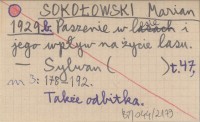 SOKOŁOWSKI Marian
1929.b. Paszenie w lasach i
jego wpływ na życie lasu.
— Sylwan ( ) t.47,
nr 3: 178-192.
Także odbitka.